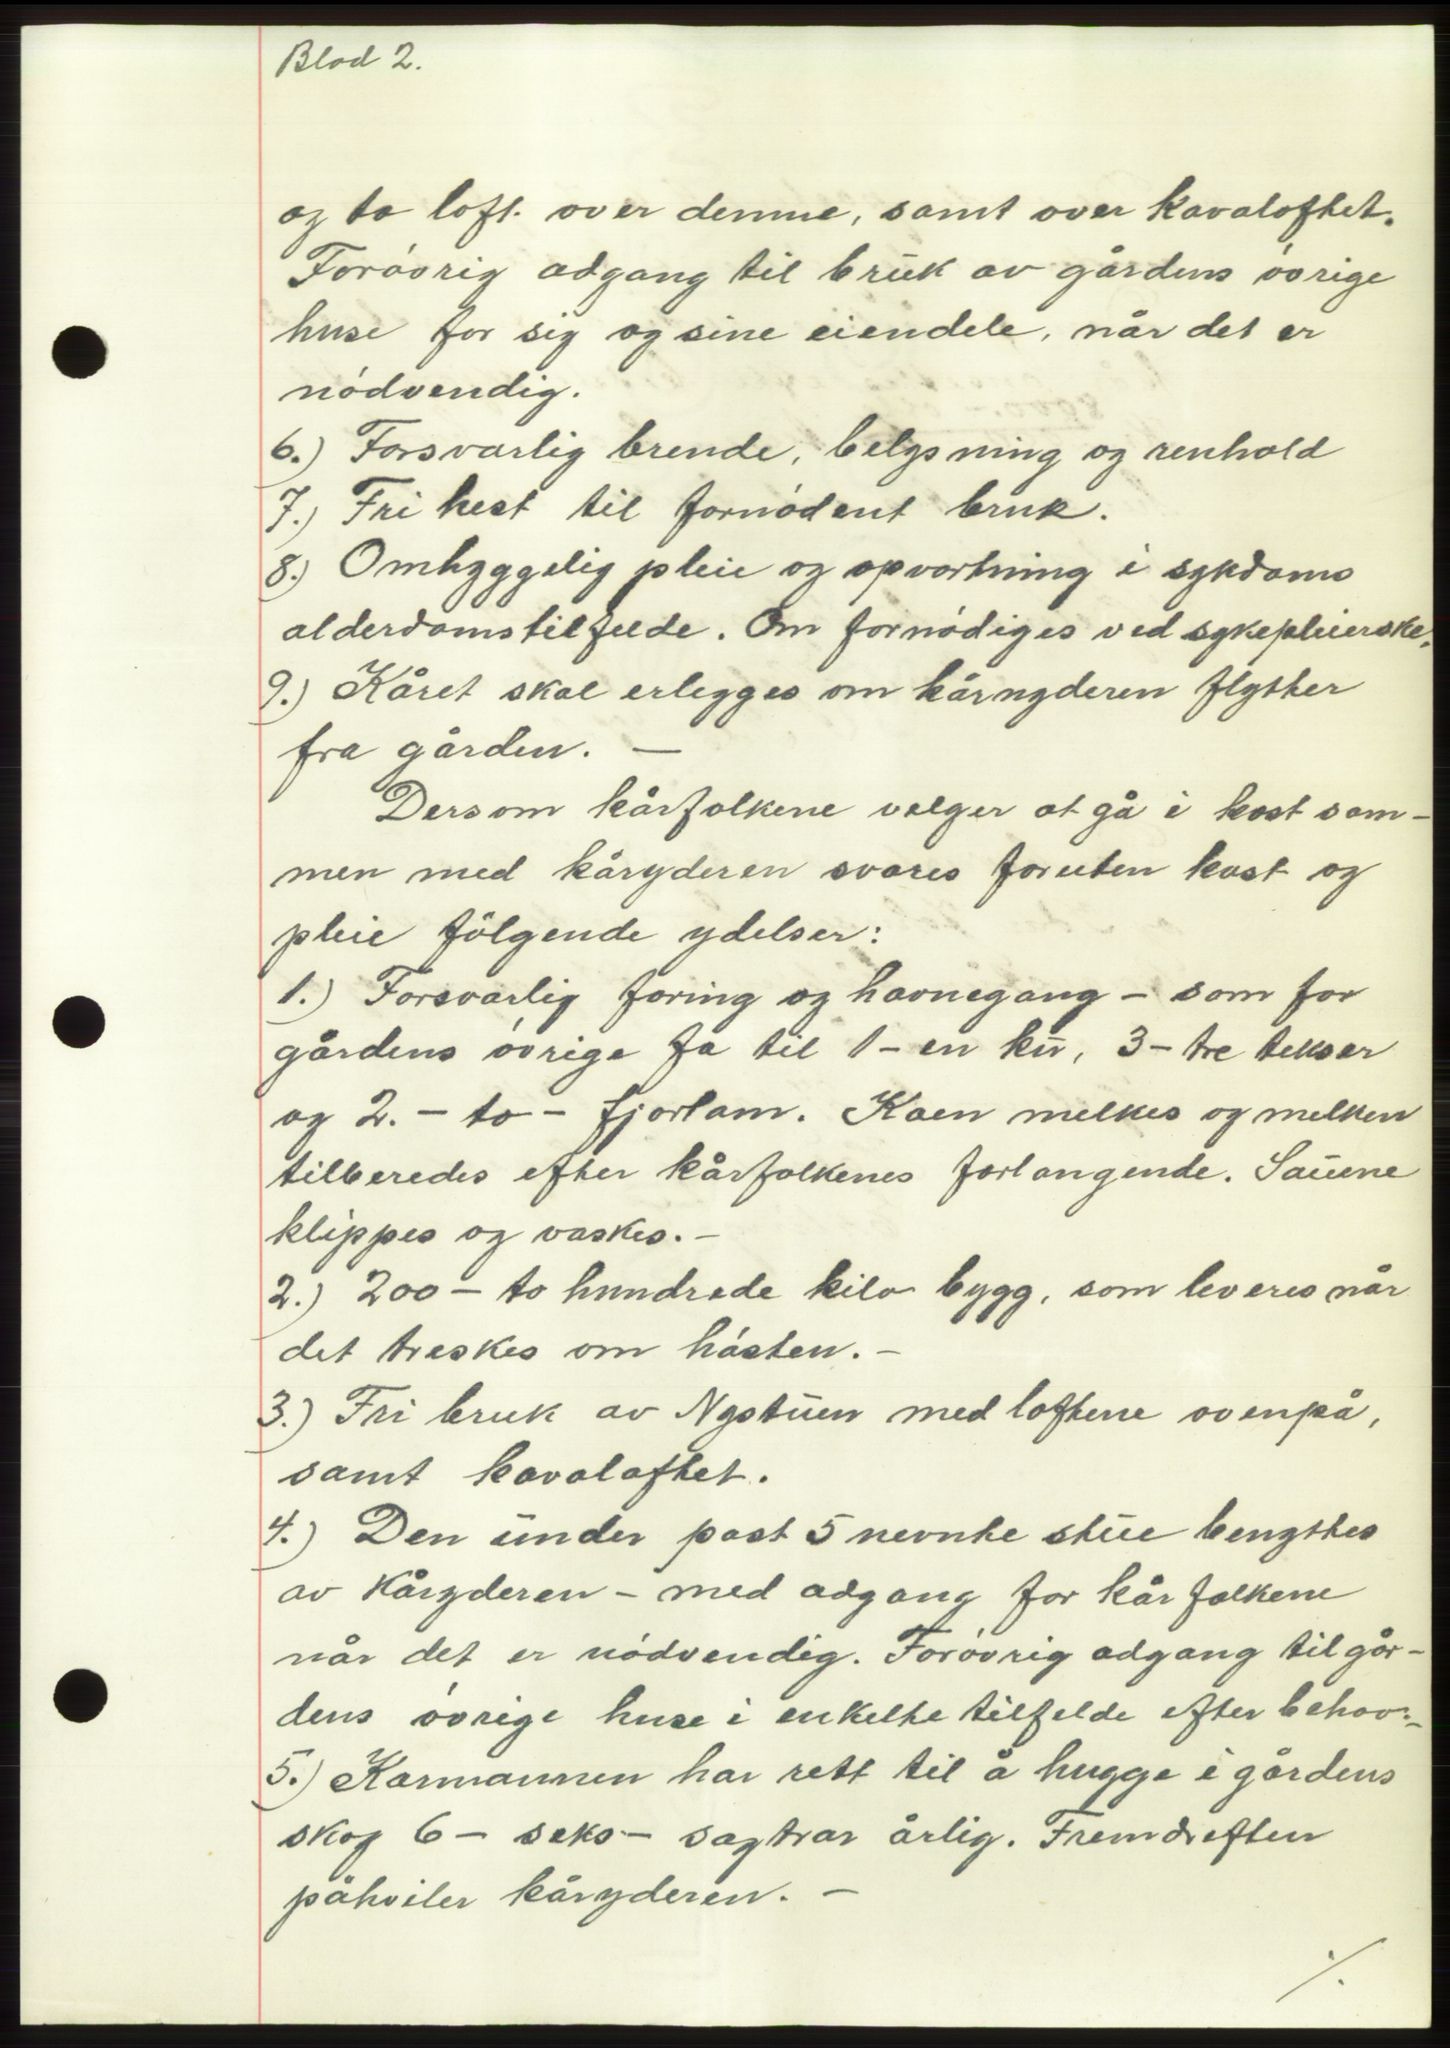 Blad 2.
og to loft. over denne, samt over kavaloftet.
Forøvrig adgang til bruk av gårdens øvrige
huse for sig og sine eiendele, når det er
nødvendig.
6.) Forsvarlig brende, belysning og renhold
7.) Fri hest til fornødent bruk.
8.) Omhyggelig pleie og opvartning i sykdoms
alderdomstilfelde. Om fornødiges ved sykepleierske.
9.) Kåret skal erlegges om kårnyderen flytter
fra gården. —
Dersom kårfolkene velger at gå i kost sam-
men med kåryderen svares foruten kost og
pleie følgende ydelser:
1.) Forsvarlig foring og havnegang - som for
gårdens øvrige fa til 1 - en ku, 3 - tre tekser
og 2. - to - fjorlam. Kaen melkes og melken
tilberedes efter kårfolkenes forlangende. Sauene
klippes og vaskes. -
2.) 200 - to hundrede kilo bygg, som leveres når
det treskes om høsten. -
3.) Fri bruk av Nystuen med loftene ovenpå,
samt kavaloftet.
4.) Den under post 5 nevnte stue benyttes
av kåryderen - med adgang for kårfolkene
når det er nødvendig. Forøvrig adgang til går-
dens øvrige huse i enkelte tilfelde efter behov. -
5.) Karmannen har rett til å hugge i gårdens
skog 6 - seks - sagtrar årlig. Fremdriften
påhviler kåryderen. -
./.